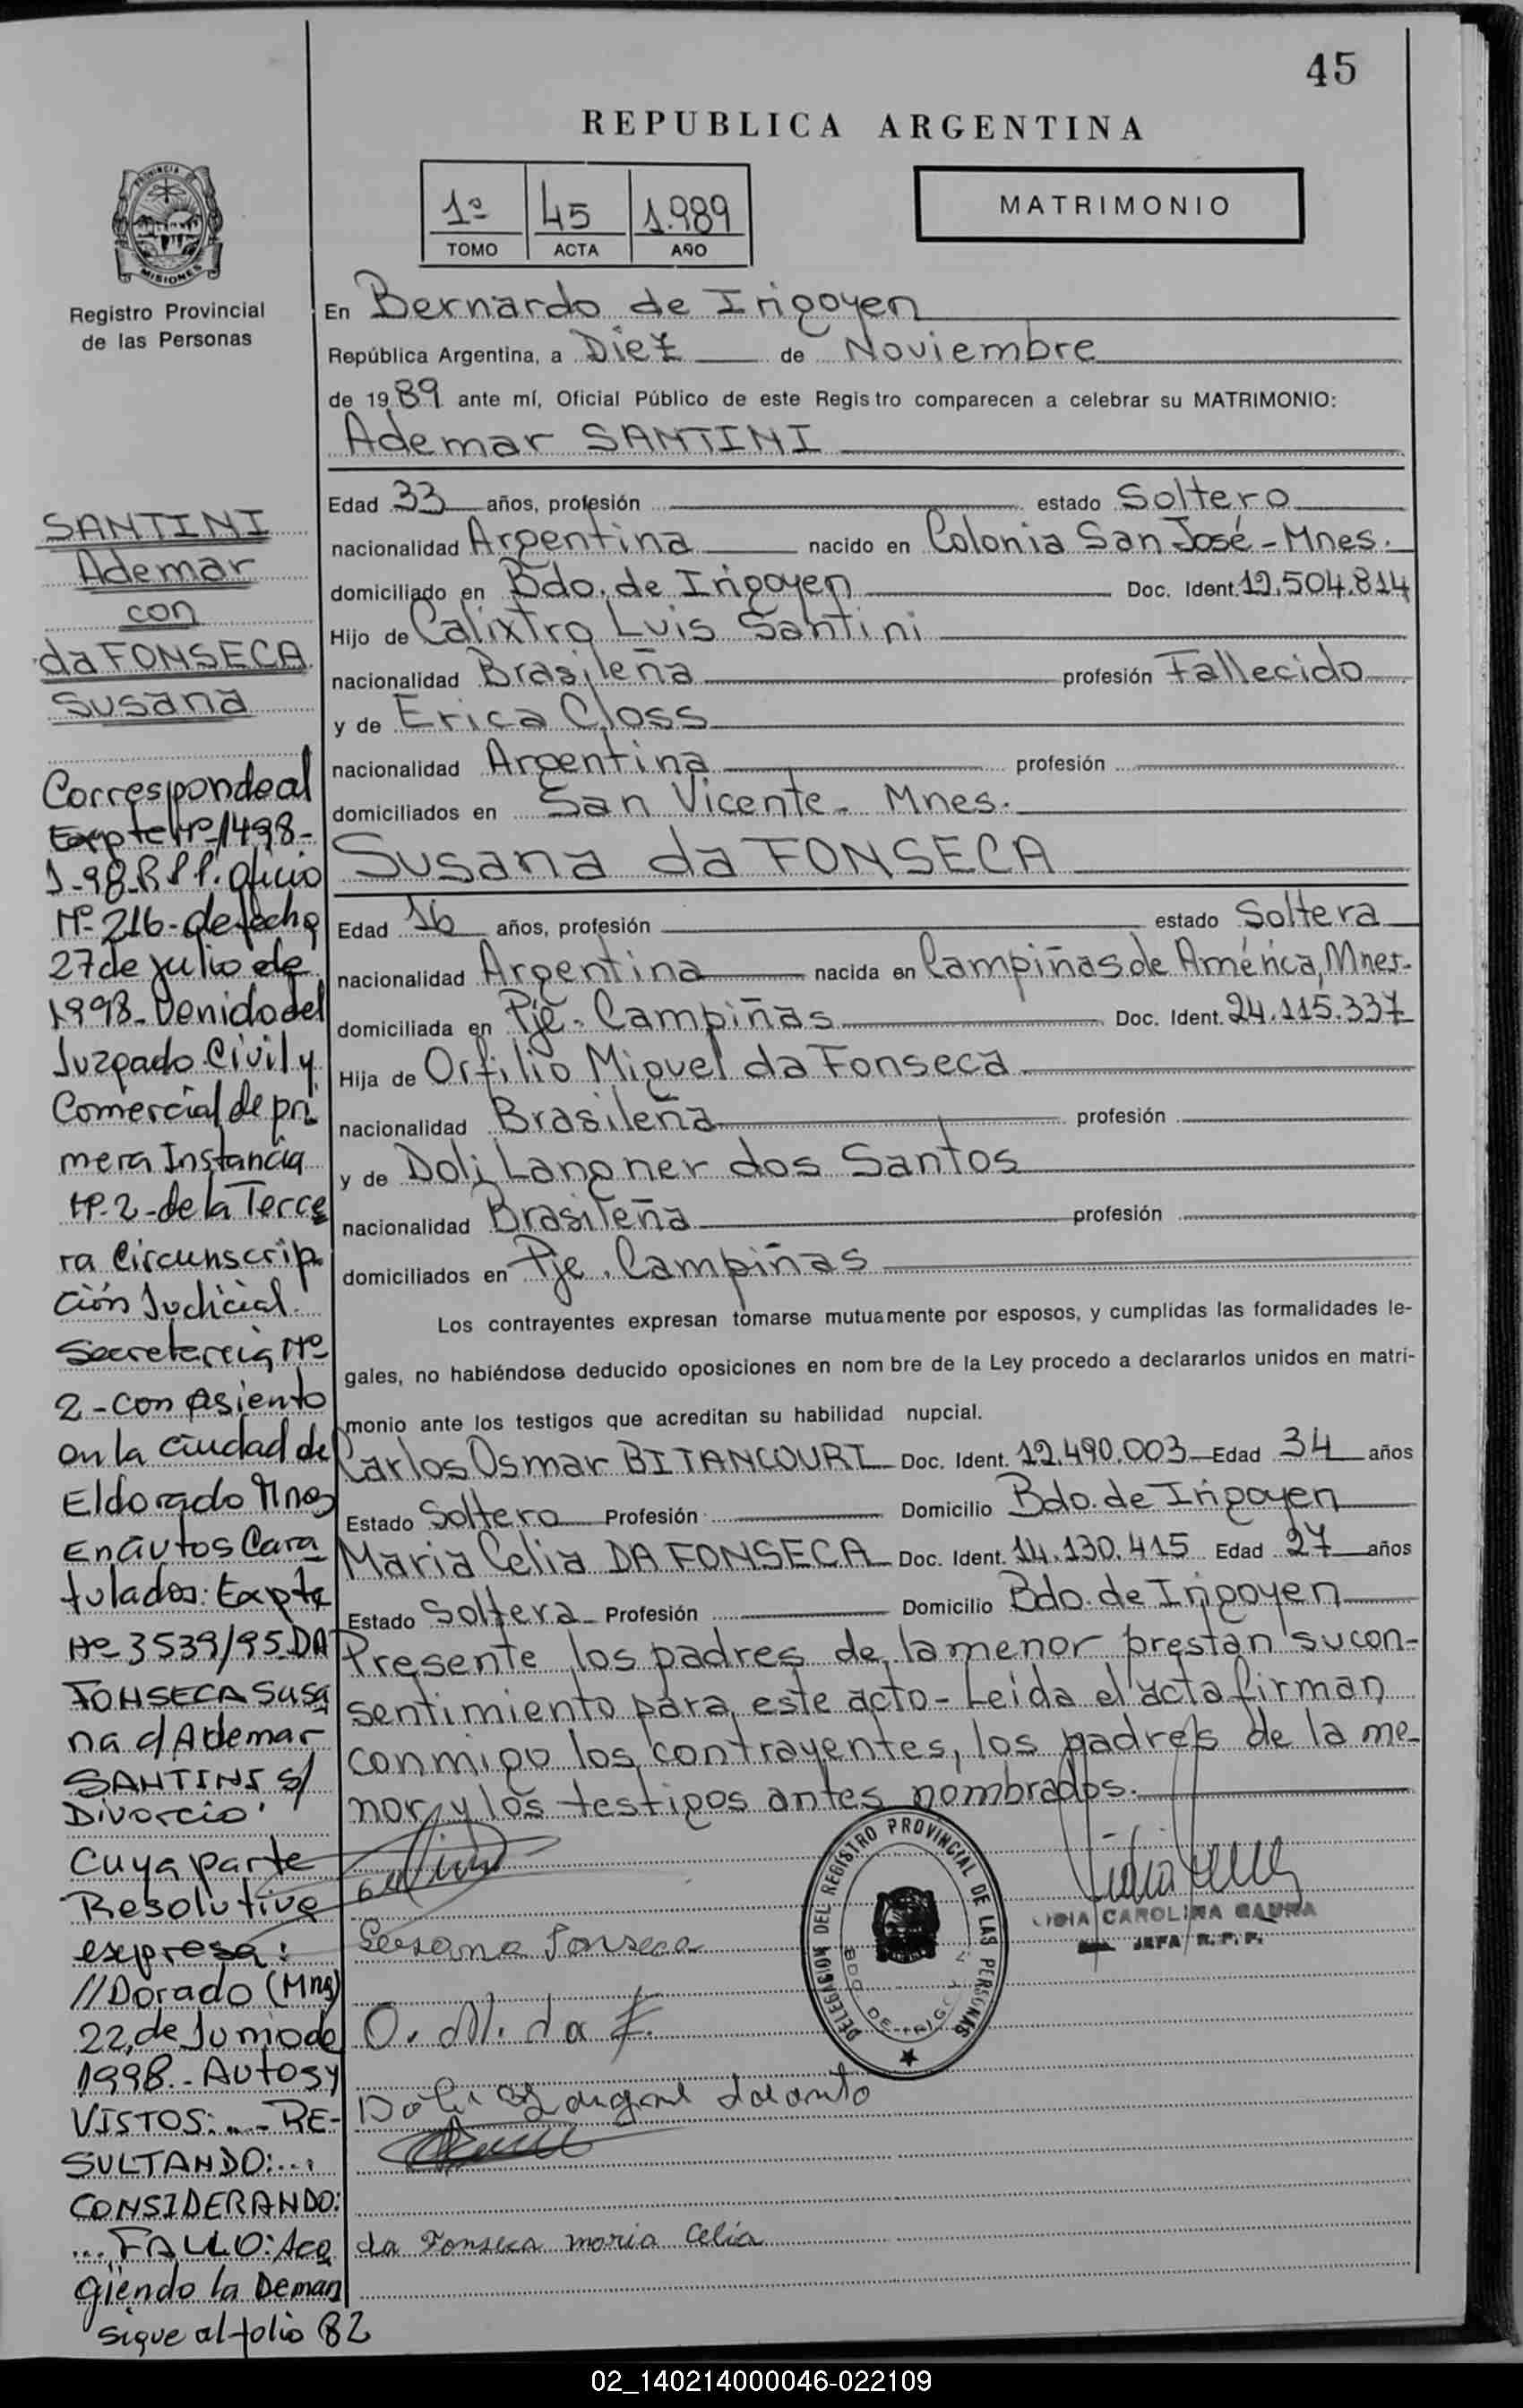 45
REPUBLICA ARGENTINA
1º 45 1.989
TOMO ACTA AÑO
MATRIMONIO
PROVINCIA DE
MISIONES
Registro Provincial
de las Personas
En Bernardo de Irigoyen
República Argentina, a Diez de Noviembre
de 1989 ante mí, Oficial Público de este Registro comparecen a celebrar su MATRIMONIO:
Ademar SANTINI
Edad 33 años, profesión estado Soltero
nacionalidad Argentina nacido en Colonia San José - Mnes.
domiciliado en Bdo. de Irigoyen Doc. Ident. 12.504.814
Hijo de Calixtro Luis Santini
nacionalidad Brasileña profesión Fallecido
y de Erica Closs
nacionalidad Argentina profesión
domiciliados en San Vicente - Mnes.
Susana da FONSECA
Edad 16 años, profesión estado Soltera
nacionalidad Argentina nacida en Campiñas de América, Mnes.
domiciliada en Pje. Campiñas Doc. Ident. 24.115.337
Hija de Orfilio Miguel da Fonseca
nacionalidad Brasileña profesión
y de Doli Langner dos Santos
nacionalidad Brasileña profesión
domiciliados en Pje. Campiñas
Los contrayentes expresan tomarse mutuamente por esposos, y cumplidas las formalidades le-
gales, no habiéndose deducido oposiciones en nombre de la Ley procedo a declararlos unidos en matri-
monio ante los testigos que acreditan su habilidad nupcial.
Carlos Osmar BITANCOURT Doc. Ident. 12.490.003 Edad 34 años
Estado Soltero Profesión Domicilio Bdo. de Irigoyen
Maria Celia DA FONSECA Doc. Ident. 14.130.415 Edad 27 años
Estado Soltera Profesión Domicilio Bdo. de Irigoyen
Presente los padres de la menor prestan su con-
sentimiento para este acto - Leida el acta firman
conmigo los contrayentes, los padres de la me-
nor y los testigos antes nombrados.
Susana Fonseca
O. M. da F.
da Fonseca maria Celia
DELEGACION DEL REGISTRO PROVINCIAL DE LAS PERSONAS
CAROLINA
JEFA R. P. P.
SANTINI
Ademar
con
da FONSECA
Susana
Corresponde al
Expte Nº 1498-
J-98-R P P. oficio
Nº 216- de fecha
27 de julio de
1998- Venido del
Juzgado Civil y
Comercial de pri
mera Instancia
Nº-2-de la Terce
ra Circunscrip
ción Judicial.
Secretaria Nº
2- con asiento
en la ciudad de
Eldorado Mnes
En autos Cara
tulados: Expte
Nº 3539/95 DA
FONSECA Susa
na c/ Ademar
SANTINI s/
Divorcio
Cuya parte
Resolutiva
expresa:
//Dorado (Mns)
22, de Junio de
1998.- Autos y
VISTOS:... - RE-
SULTANDO:...
CONSIDERANDO:
... FALLO: Aco
giendo la Deman
sigue al folio 82
02_140214000046-022109